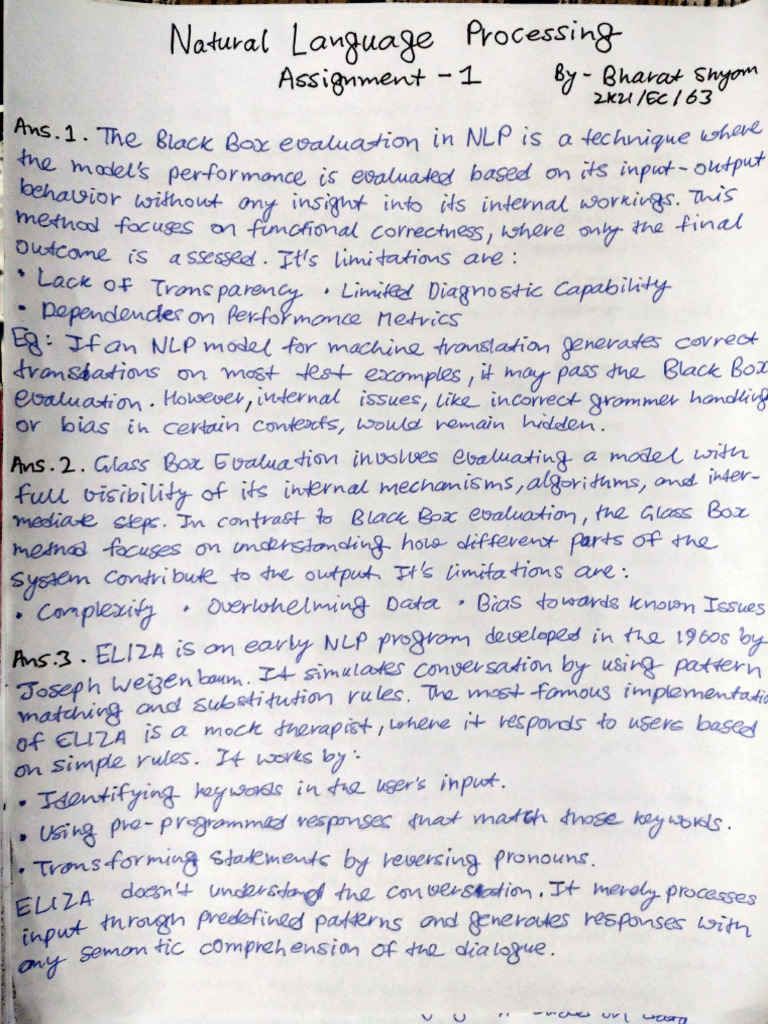 Natural Language Processing
Assignment - 1 By - Bharat Shyam
2K21/EC/63
Ans.1. The Black Box evaluation in NLP is a technique where
the model's performance is evaluated based on its input-output
behavior without any insight into its internal workings. This
method focuses on functional correctness, where only the final
outcome is assessed. It's limitations are:
• Lack of Transparency • Limited Diagnostic Capability
• Dependencies on Performance Metrics
Eg: If an NLP model for machine translation generates correct
translations on most test examples, it may pass the Black Box
evaluation. However, internal issues, like incorrect grammer handling
or bias in certain contexts, would remain hidden.
Ans.2. Glass Box Evaluation involves evaluating a model with
full visibility of its internal mechanisms, algorithms, and inter-
mediate steps. In contrast to Black Box evaluation, the Glass Box
method focuses on understanding how different parts of the
system contribute to the output. It's limitations are:
• Complexity • Overwhelming Data • Bias towards Known Issues
Ans.3. ELIZA is an early NLP program developed in the 1960s by
Joseph Weizenbaum. It simulates conversation by using pattern
matching and substitution rules. The most famous implementatio
of ELIZA is a mock therapist, where it responds to users based
on simple rules. It works by:
• Identifying keywords in the user's input.
• Using pre-programmed responses that match those keywords.
• Transforming statements by reversing pronouns.
ELIZA doesn't understand the conversation. It merely processes
input through predefined patterns and generates responses with
any semantic comprehension of the dialogue.